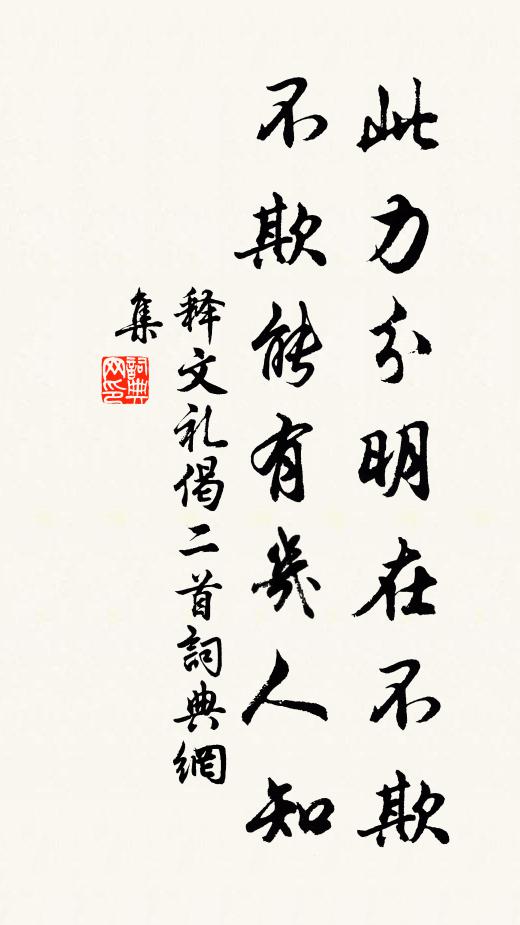 此力分明在不欺
不欺能有幾人知
释文礼偈二首詞典網
集
詞典网印